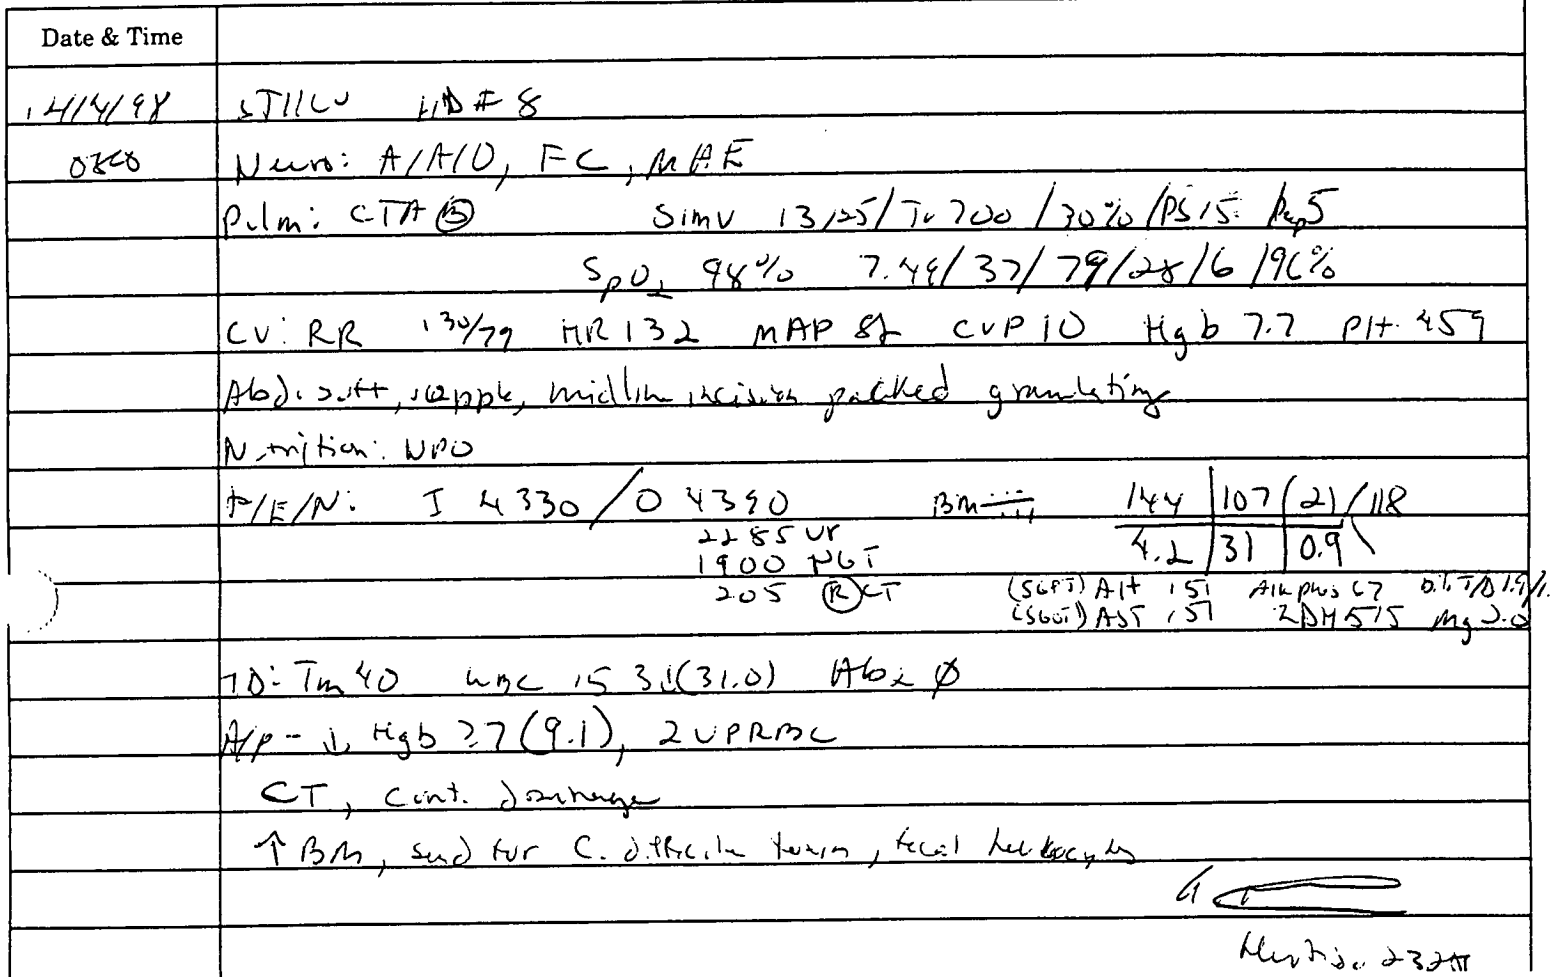 Date & Time
STICU HD # 8
Neuro: A/A/O, FC, MAE
Pulm: CTA Ⓑ SIMV 13/25/Tv 700/30%/PS 15/Peep 5
SpO₂ 98% 7.49/37/79/28/6/96%
CV: RR 130/79 HR 132 MAP CVP 10 Hgb 7.7 Plt 459
Abd: soft, midline incision packed granulating
Nutrition: NPO
F/E/N: I 4330/O 4390 BM 144 107 21/118
2285 Ur 4.2 31 0.9
1900 NGT
205 Ⓡ CT (SGPT) Alt 151 Alk phos 67
(SGOT) AST 151 LDH 515 Mg 2.0
ID: Tm 40 WBC (31.0) Abx Ø
A/P - ↓ Hgb 7.7 (9.1), 2 U PRBC
CT, cont. drainage
↑ BM, send for C. difficile toxin, fecal leukocytes